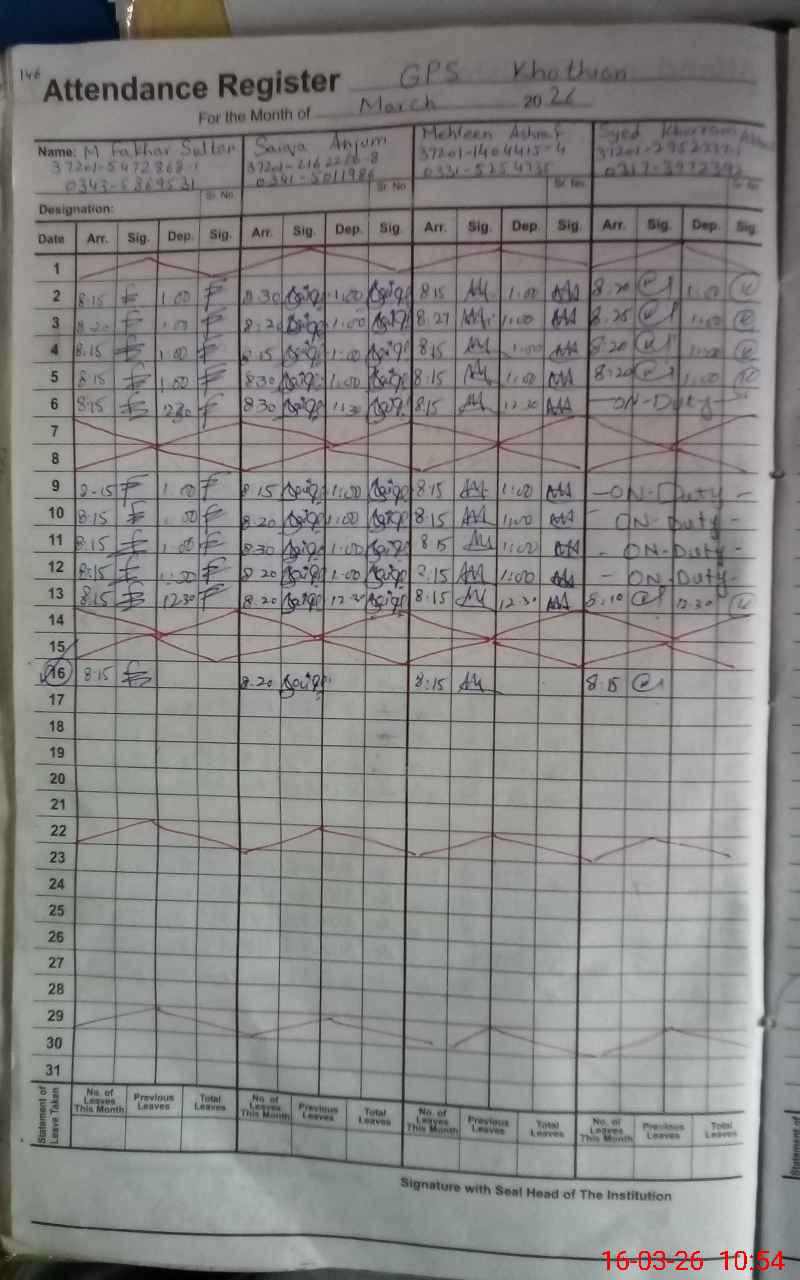 146
Attendance Register GPS Khothian
For the Month of March 2026
Name: M Fakhar Sultan Saiqa Anjum Mehleen Ashraf Syed Khurram
37201-5472868-1 37201-2162256-8 37201-1404415-4
0343-5869531 0341-5011986 0331-5254735
Sr. No. Sr. No. Sr. No. Sr. No.
Designation:
Date Arr. Sig. Dep. Sig. Arr. Sig. Dep. Sig. Arr. Sig. Dep. Sig. Arr. Sig. Dep. Sig.
1
2 8:15 1:00 8:30 1:00 8:15 1:00 8:20 1:00
3 8:20 1:00 8:20 1:00 8:27 1:00 8:25 1:00
4 8:15 1:00 8:15 1:00 8:15 1:00 8:20 1:00
5 8:15 1:00 8:30 1:00 8:15 1:00 8:20 1:00
6 8:15 12:30 8:30 12:30 8:15 12:30 -ON-Duty-
7
8
9 8:15 1:00 8:15 1:00 8:15 1:00 -ON-Duty-
10 8:15 1:00 8:20 1:00 8:15 1:00 - ON-Duty-
11 8:15 1:00 8:30 1:00 8:15 1:00 - ON-Duty-
12 8:15 1:00 8:20 1:00 8:15 1:00 - ON-Duty-
13 8:15 12:30 8:20 12:30 8:15 12:30 8:10 12:30
14
15
16 8:15 8:20 8:15 8:15
17
18
19
20
21
22
23
24
25
26
27
28
29
30
31
Statement of Leave Taken No. of Leaves This Month Previous Leaves Total Leaves No. of Leaves This Month Previous Leaves Total Leaves No. of Leaves This Month Previous Leaves Total Leaves No. of Leaves This Month Previous Leaves Total Leaves
Signature with Seal Head of The Institution
Statement of
16-03-26 10:54